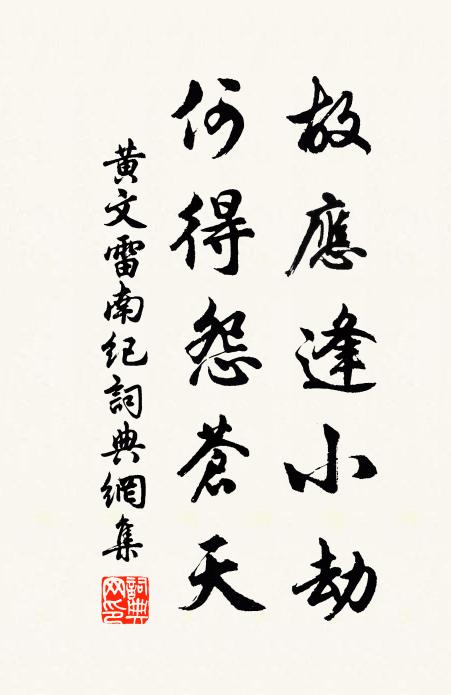 故應逢小劫
何得怨蒼天
黄文雷南紀詞典網集
詞典网印